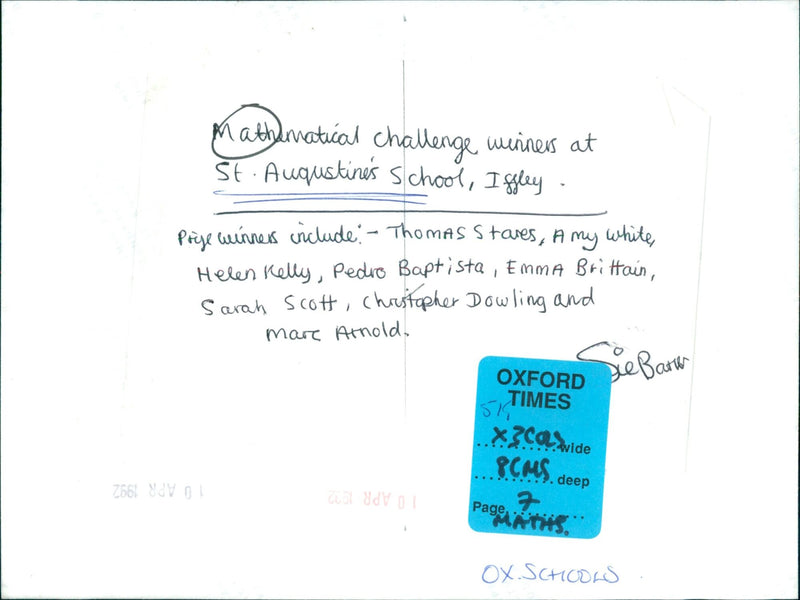 Mathematical challenge winners at
St. Augustine's School, Iffley.
Prize winners include:- Thomas Staves, Amy White,
Helen Kelly, Pedro Baptista, Emma Brittain,
Sarah Scott, Christopher Dowling and
Marc Arnold.
OXFORD
TIMES
x3Cols wide
8CMS deep
Page 7
MATHS.
10 APR 1992
10 APR 1992
OX. SCHOOLS